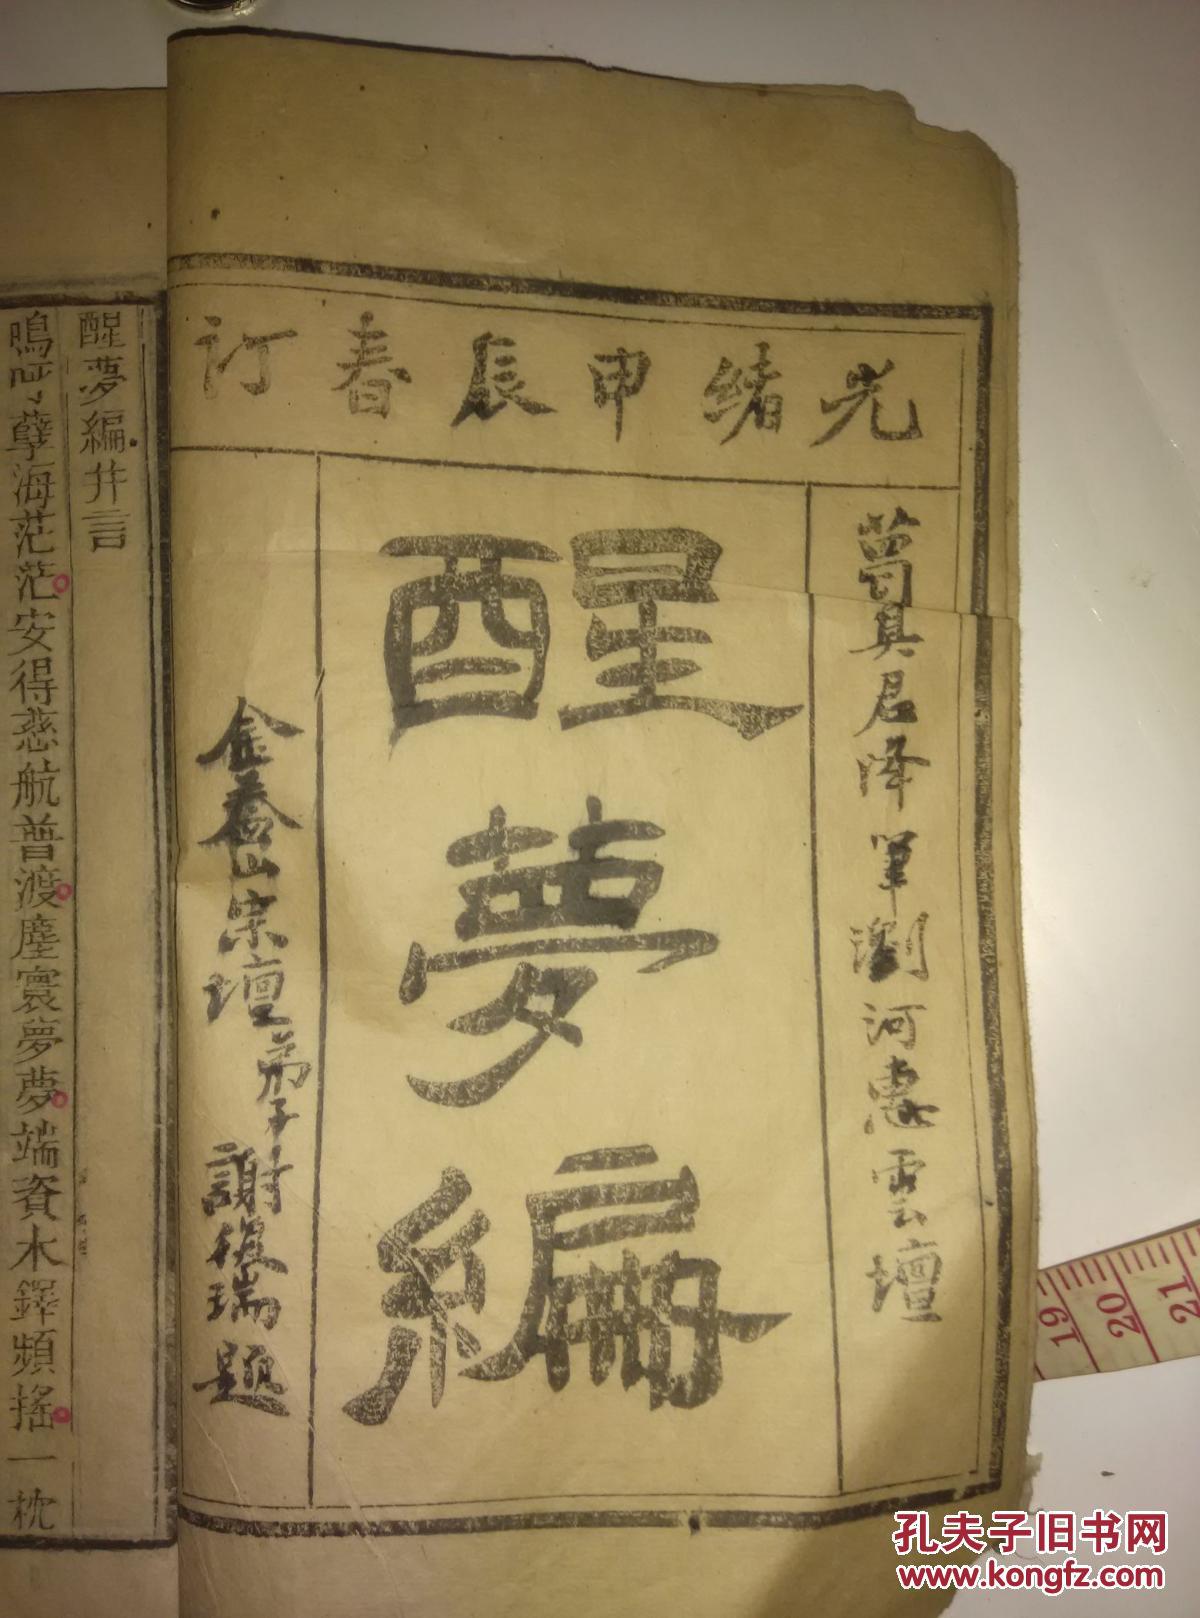 光緒甲辰春訂
葛真君降筆瀏河惠雲壇
醒夢編
金養山宗壇弟子謝復瑞題
醒夢編弁言
嗚呼孽海茫茫安得慈航普渡塵寰夢夢端資木鐸頻搖一枕
19 20 21
孔夫子旧书网
www.kongfz.com